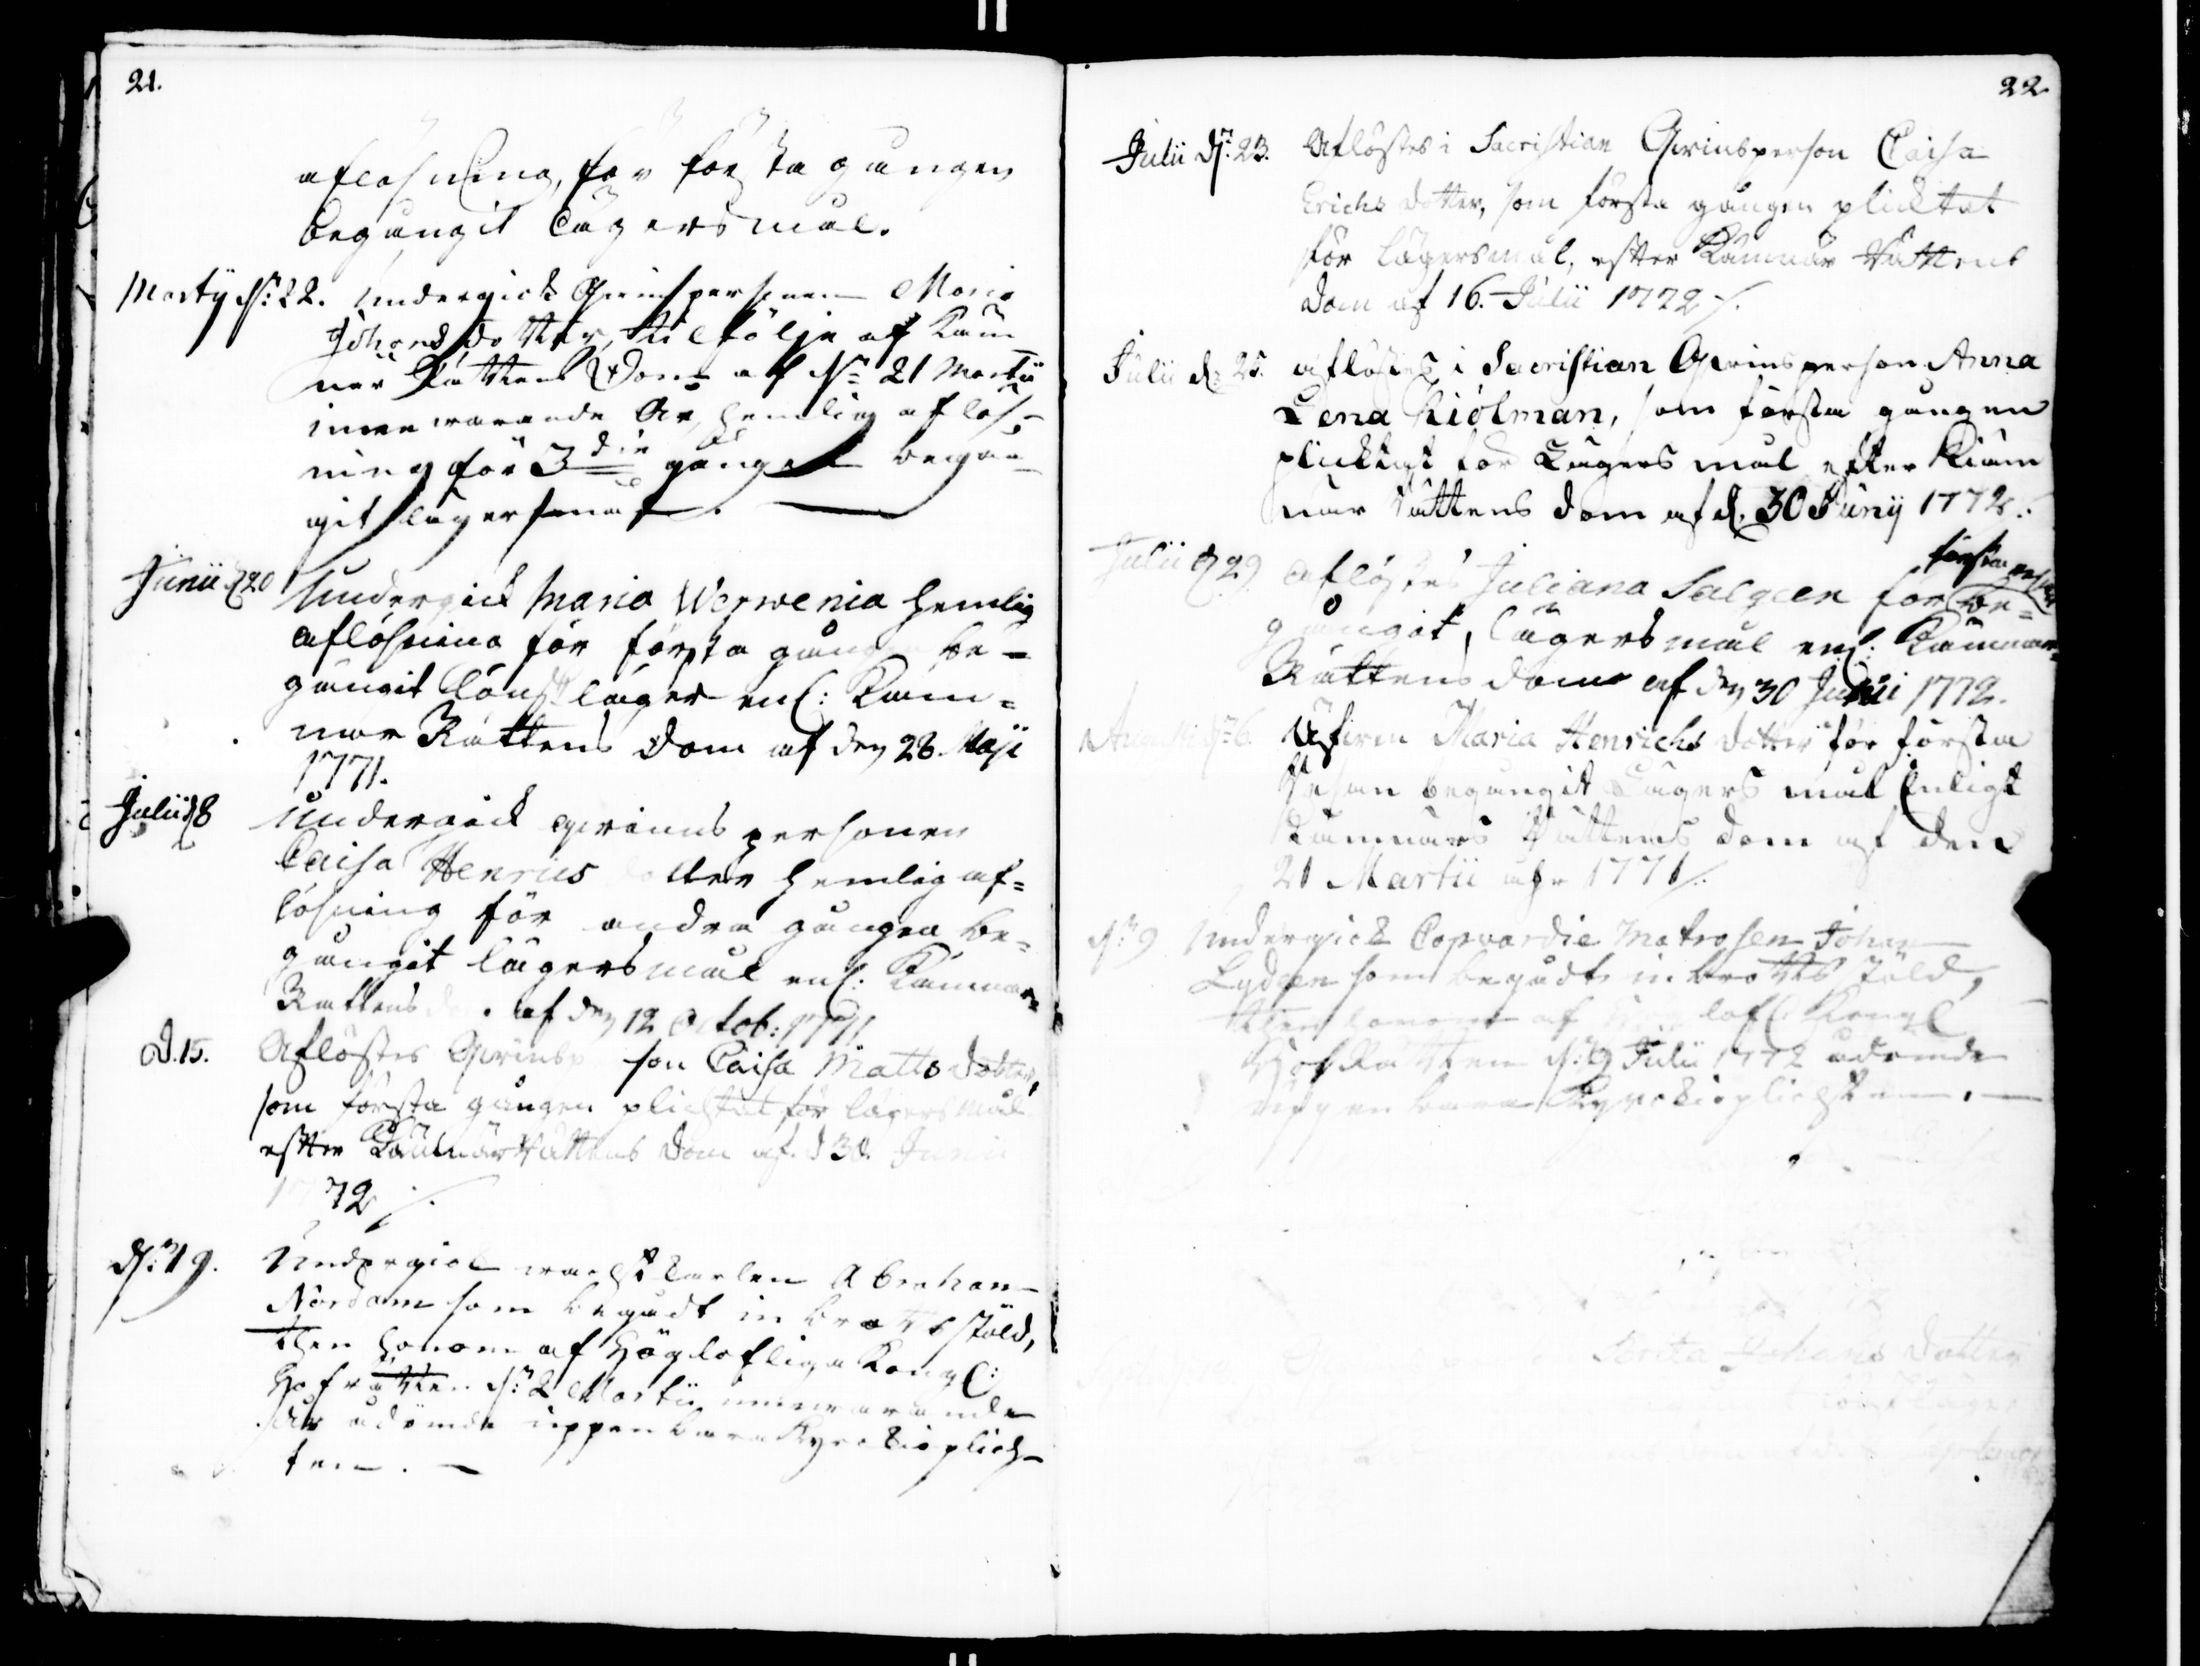 21.
aflösning, för första gången
begångit lägersmål.
Martij dn: 22. Undergick Qwinspersonen Maria
Johans dotter, til följe af Käm-
ners Rättens Dom af dn 21 Martii
innewarande År, hemlig aflös-
ning för 3die gången begån-
git lägersmål.
Junii d 20 Undergick Maria Werwenia hemlig
aflösning för första gången be-
gångit Lönskläger enl: Käm=
nar Rättens Dom af den 28. Maji
1771.
Julii d 8 Undergick qvinnspersonen
Caisa Henrics dotter hemlig af=
lösning för andra gången be=
gångit lägersmål enl: Kämnar=
Rättens dom af den 12 Octob: 1771
d. 15. Aflöstes Qwinsperson Caisa Matts dotter,
som första gången plichtat för lägersmål
efter Kämnärs Rättens Dom af d 30. Junii
1772 /.
dn: 19. Undergick wachtkarlen Abraham
Nordam som begådt inbrotts stöld,
then honom af Höglofliga Kongl:
Hofrätten dn: 2 Martii innewarande
år ådömde uppenbara Kyrckioplich-
ten. –
22.
Julii dn: 23. Aflöstes i Sacristian Qwinsperson Caisa
Erichs dotter, som första gången plichtat
för lägersmål, efter Kämnär Rättens
Dom af 16. Julii 1772 /.
Julii d: 25. aflöstes i Sacristian Qwinsperson Anna
Lena Kiölman, som första gången
plicktat för Lägers mål efter Kiäm
närs Rättens Dom af d. 30 Junij 1772.
första resan
Julii d 29 aflöstes Juliana Salgeen för be=
gångit, lägersmål enl: Kämnar=
Rättens dom af den 30 Junii 1772.
Augusti dn 6. Äfwen Maria Henrichs dotter för första
resan begångit Lägers mål Enligt
Kämnärs Rättens Dom af den
21 Martii åhr 1771 /.
dn: 9 Undergick Copvardie Matrosen Johan
Lydeen som begådt inbrotts stöld,
then honom af Högl. lofl. Kongl
Hof Rätten dn: 9 Julii 1772 ådömde
uppenbara Kyrckioplichten. –
Brita Johans dotter